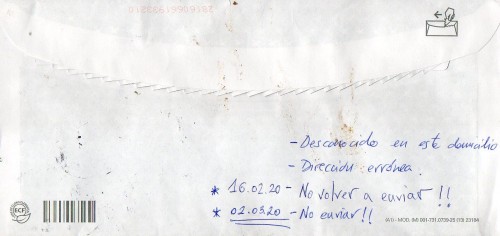 - Desconocido en este domicilio
- Dirección errónea.
* 16.02.20 - No volver a enviar!!
* 02.03.20 - No enviar!!
ECF
(A) - MOD. (M) 001-731.0739-25 (13) 23104